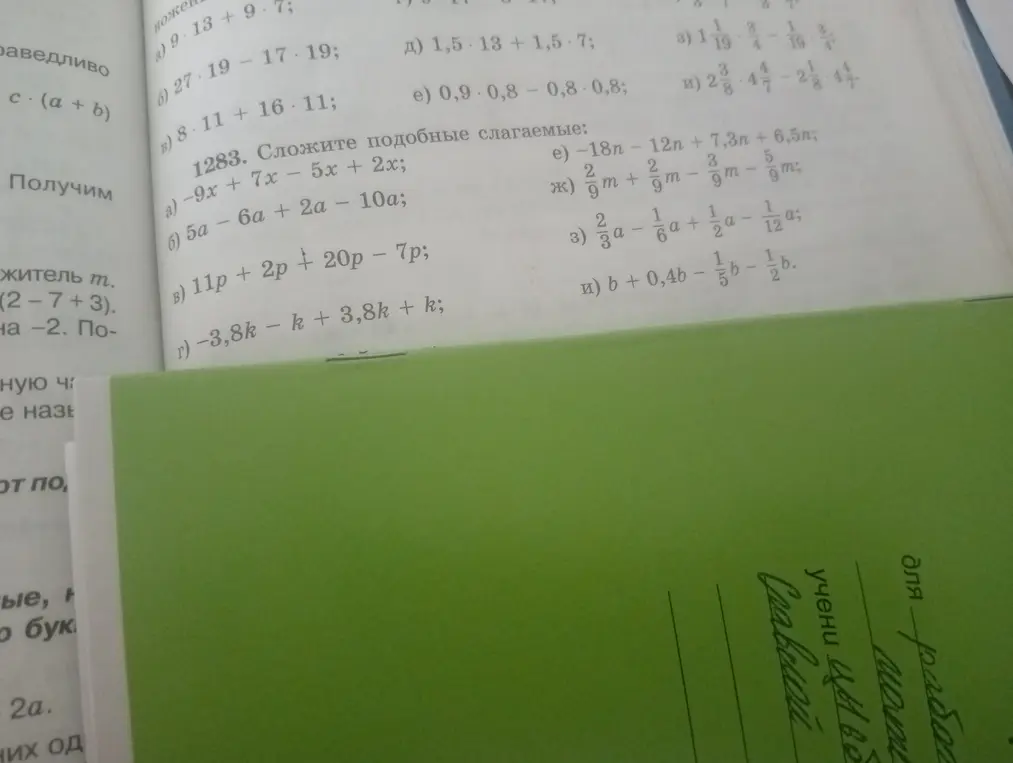 раведливо
c · (a + b)
Получим
житель m.
(2 – 7 + 3).
на –2. По-
2a.
а) 9 · 13 + 9 · 7;
б) 27 · 19 – 17 · 19;
в) 8 · 11 + 16 · 11;
д) 1,5 · 13 + 1,5 · 7;
е) 0,9 · 0,8 – 0,8 · 0,8;
з) 1 1/19 · 3/4 – 1/19 · 3/4;
и) 2 3/8 · 4 4/7 – 2 1/8 · 4 4/7
1283. Сложите подобные слагаемые:
а) –9x + 7x – 5x + 2x;
б) 5a – 6a + 2a – 10a;
в) 11p + 2p + 20p – 7p;
г) –3,8k – k + 3,8k + k;
е) –18n – 12n + 7,3n + 6,5n;
ж) 2/9 m + 2/9 m – 3/9 m – 5/9 m;
з) 2/3 a – 1/6 a + 1/2 a – 1/12 a;
и) b + 0,4b – 1/5 b – 1/2 b.
для
учени